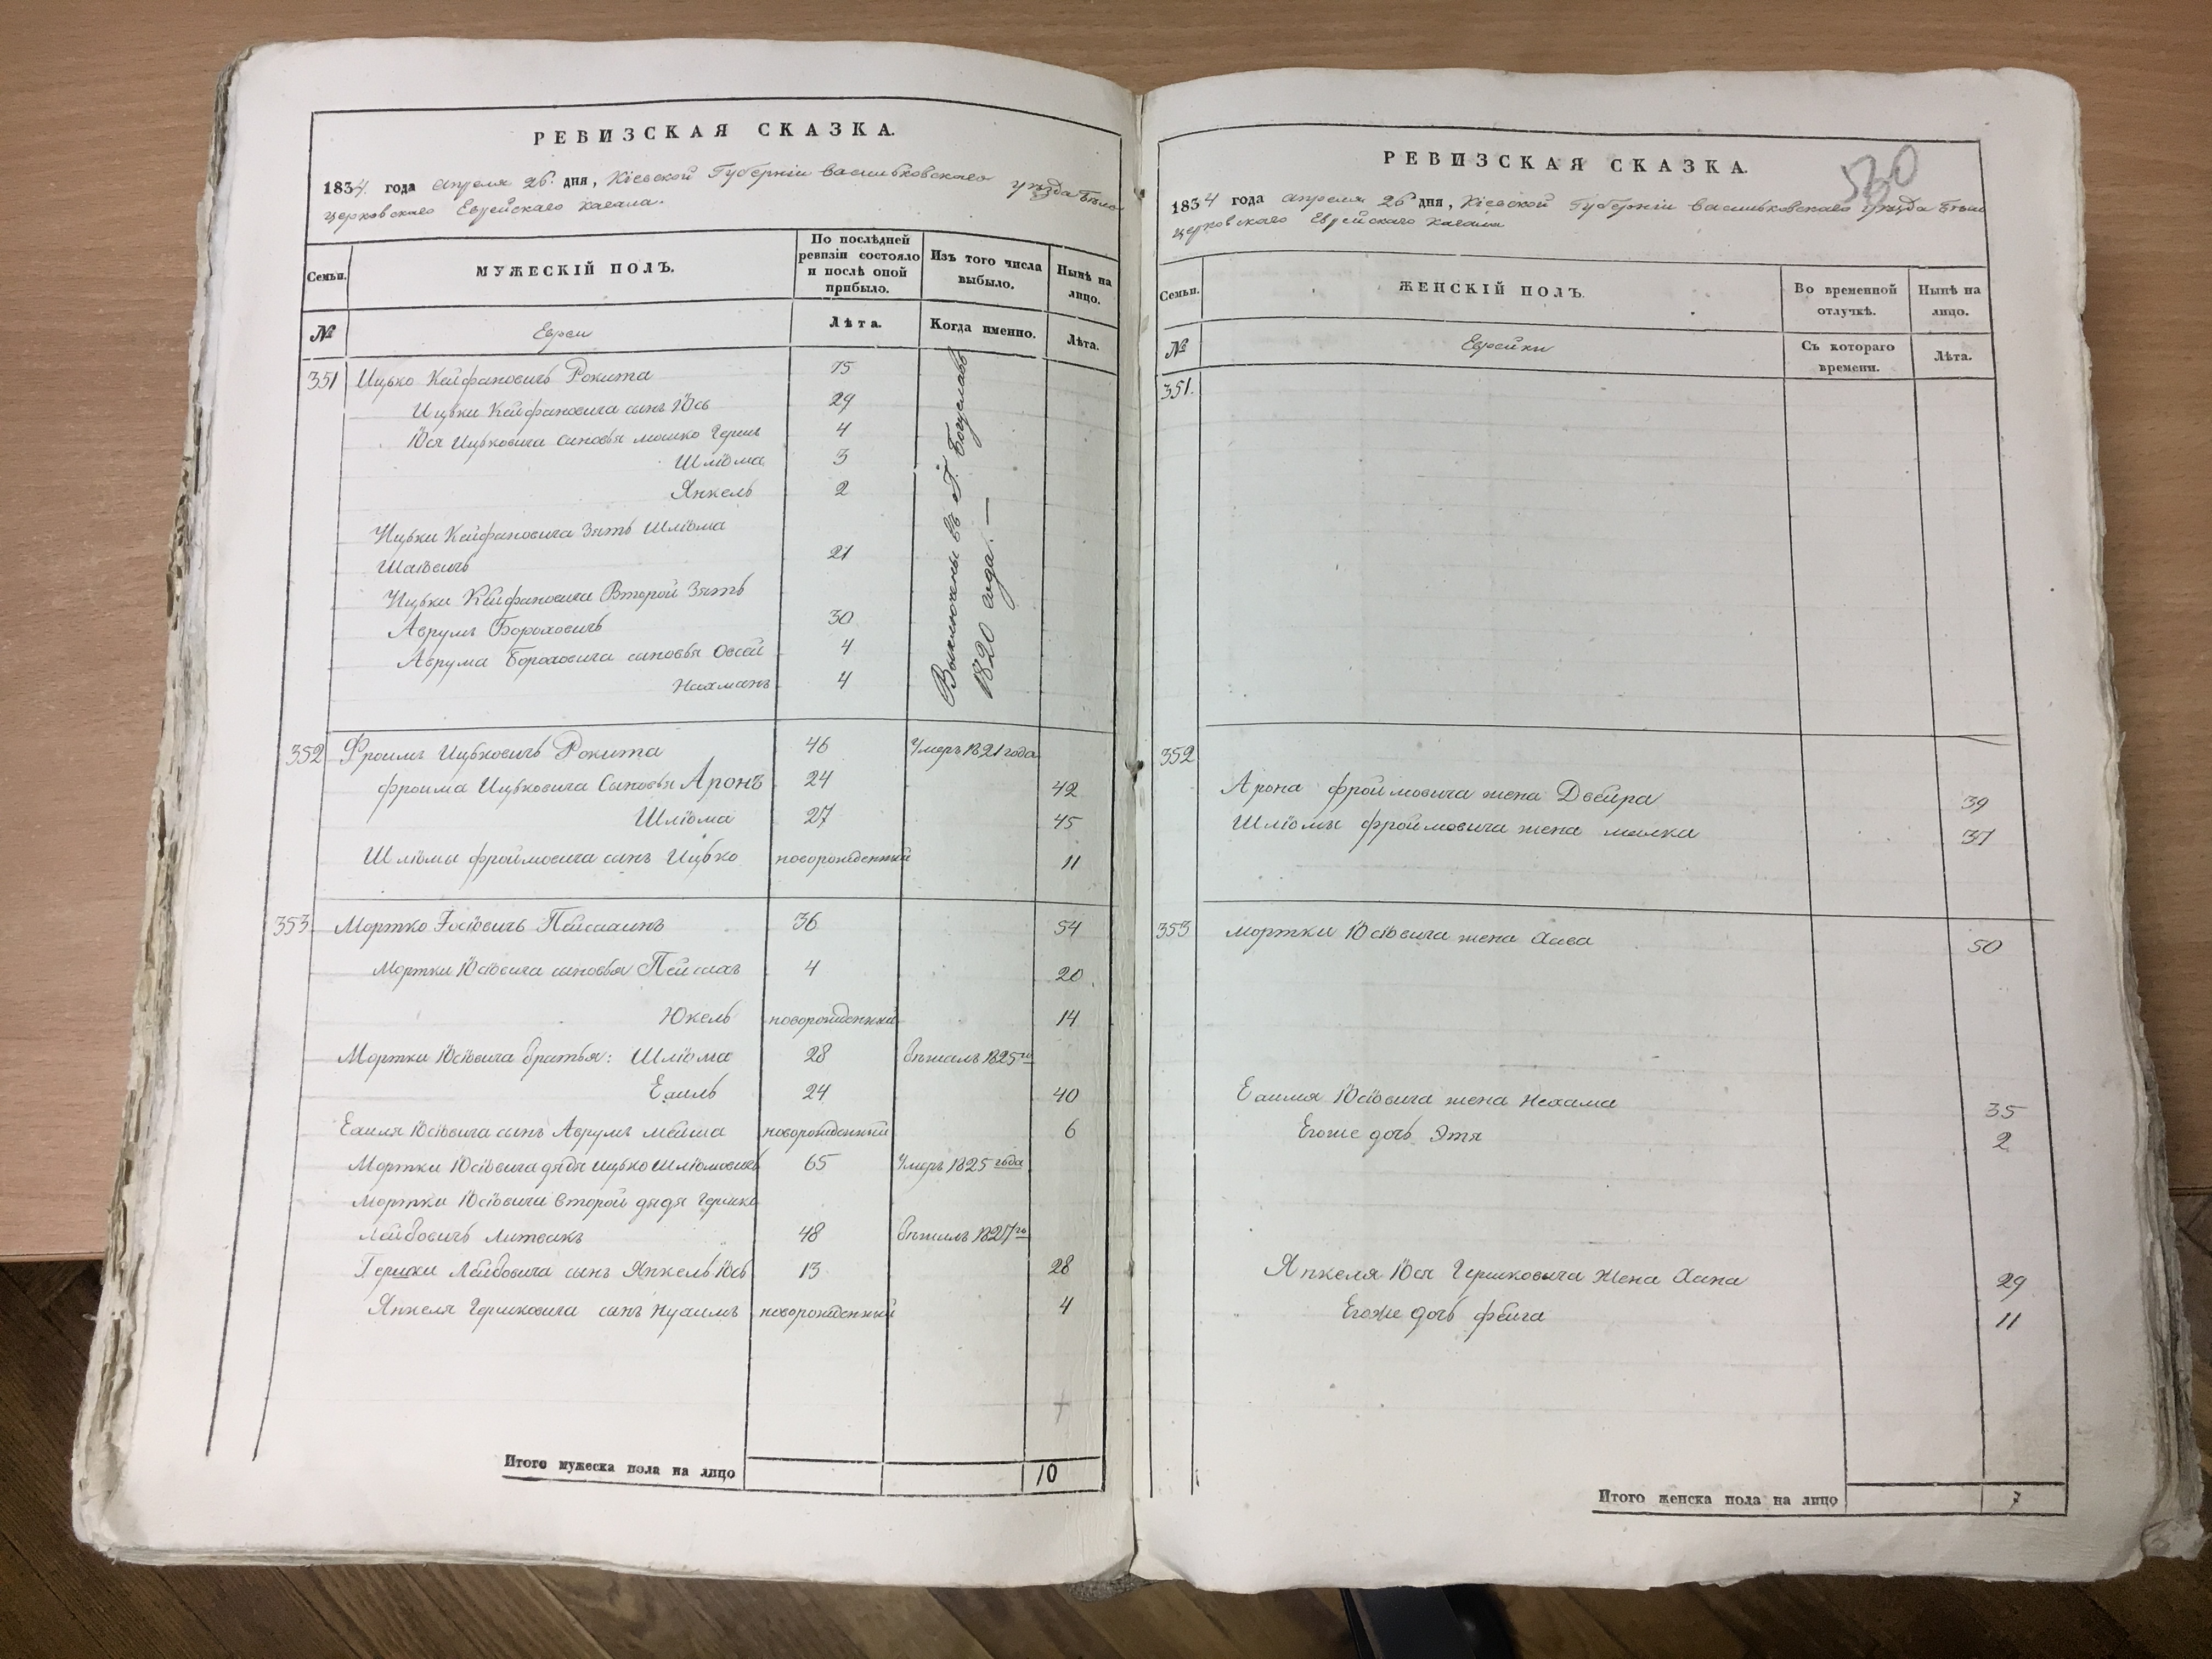 РЕВИЗСКАЯ СКАЗКА.
1834 года апреля 26 дня, Кіевской Губерніи васильковскаго уѣзда Бѣло
церковскаго Еврейскаго кагала.
Семьи. МУЖЕСКІЙ ПОЛЪ. По послѣдней ревизіи состояло и послѣ оной прибыло. Изъ того числа выбыло. Нынѣ на лицо.
№ Евреи Лѣта. Когда именно. Лѣта.
351 Ицько Кейфановичъ Рокита 75
Ицьки Кейфановича сынъ Юсь 29
Юся Ицьковича сыновья мошко Гершъ 4
Шліома 3
Янкель 2
Ицьки Кейфановича Зять Шліома
Шаіовичъ 21
Ицьки Кейфановича Второй Зять
Аврумъ Бороховичъ 30
Аврума Бороховича сыновья Овсей 4
Нахманъ 4
Выключены въ Г. Богуславъ
1820 года. —
352 Фроимъ Ицьковичъ Рокита 46 Умеръ 1821 года
фроима Ицьковича Сыновья Аронъ 24 42
Шліома 27 45
Шліомы фроймовича сынъ Ицько новорожденный 11
353 Мортко Іосіовичъ 36 54
Мортки Юсіовича сыновья Пейсахъ 4 20
Юкель новорожденный 14
Мортки Юсіовича братья: Шліома 28 бежалъ 1825 го
Ехиль 24 40
Ехиля Юсіовича сынъ Аврумъ мейша новорожденный 6
Мортки Юсіовича дядя Ицько Шліомовичъ 65 Умеръ 1825 года
Мортки Юсіовича второй дядя Гершко
Лейбовичъ Литвакъ 48 бежалъ 1827 го
Гершки Лейбовича сынъ Янкель Юсь 13 28
Янкеля Гершковича сынъ Нухимъ новорожденный 4
Итого мужеска пола на лицо 10
530
РЕВИЗСКАЯ СКАЗКА.
1834 года апреля 26 дня, Кіевской Губерніи васильковскаго уѣзда Бѣло
церковскаго Еврейскаго кагала
Семьи. ЖЕНСКІЙ ПОЛЪ. Во временной отлучкѣ. Нынѣ на лицо.
№ Еврейки Съ котораго времени. Лѣта.
351.
352
Арона фроймовича жена Двейра 39
Шліомы фроймовича жена малка 37
353 мортки Юсіовича жена Хава 50
Ехиля Юсіовича жена Нехама 35
Егоже дочь Этя 2
Янкеля Юся Гершковича Жена Хана 29
Егоже дочь фейга 11
Итого женска пола на лицо 7